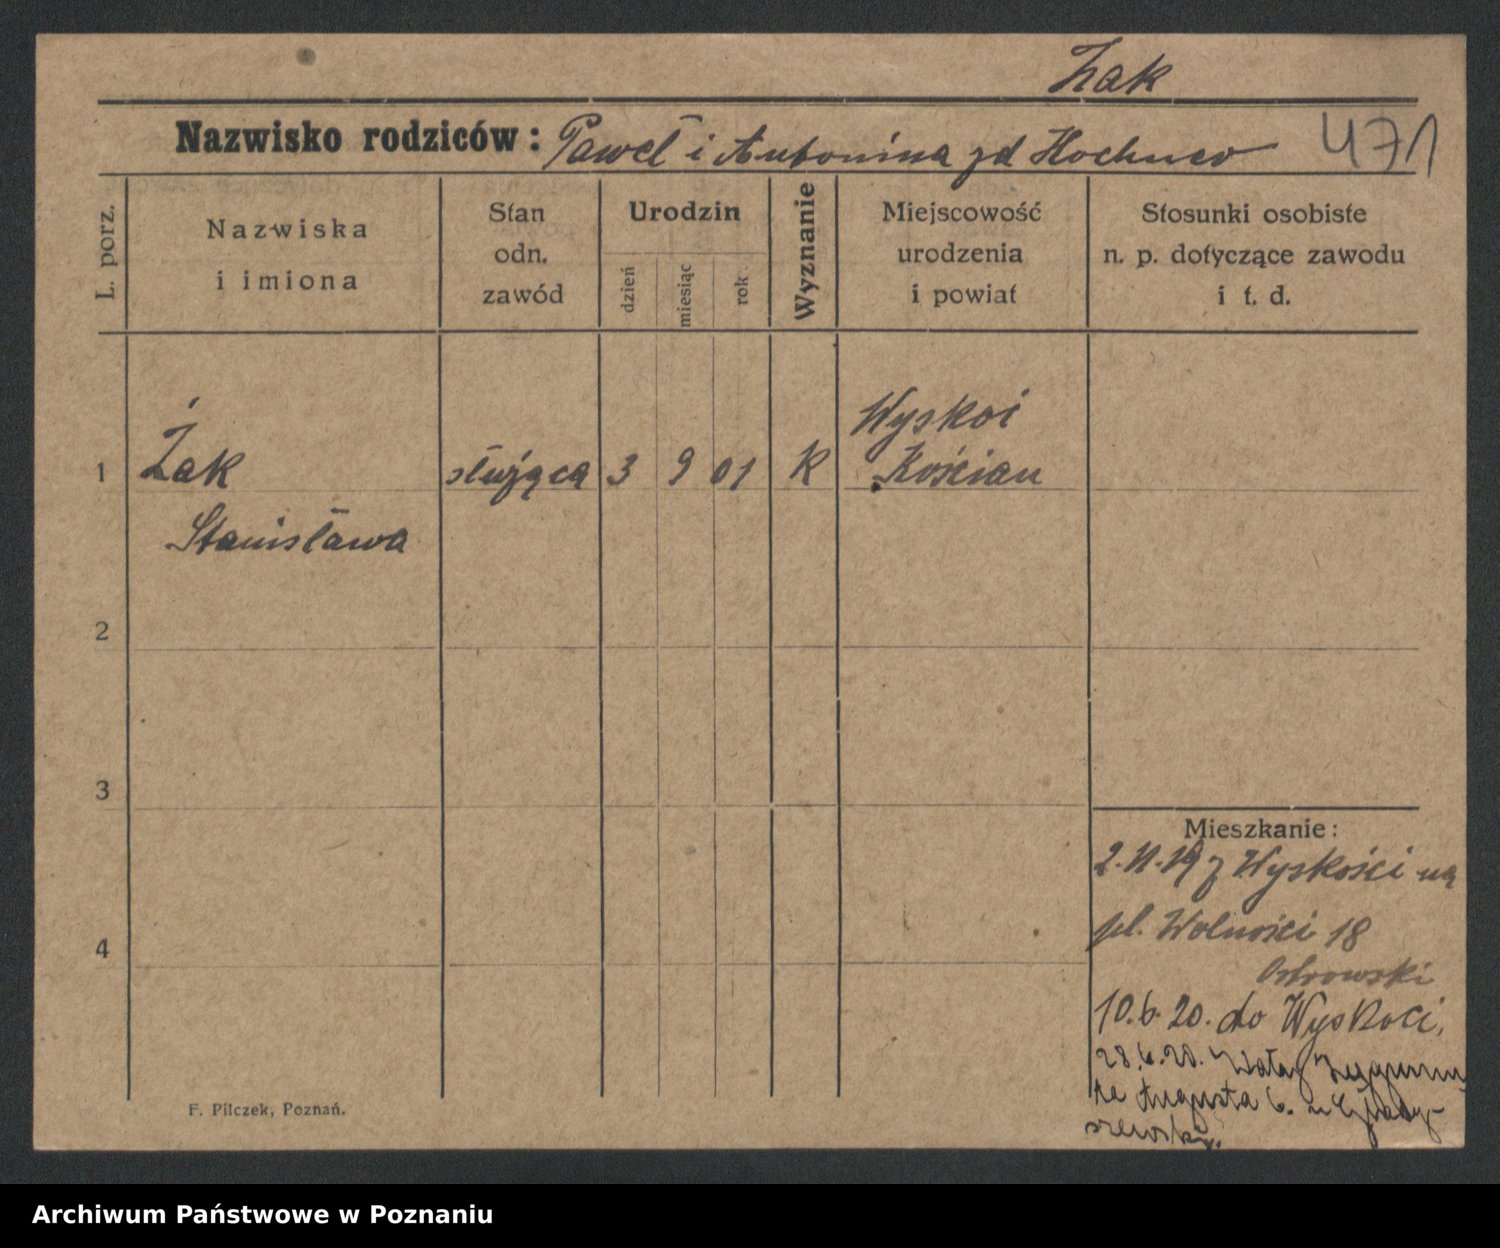 Żak
Nazwisko rodziców: Paweł i Antonina zd Hochner 471
L. porz.
Nazwiska
i imiona
Stan
odn.
zawód
Urodzin
dzień
miesiąc
rok
Wyznanie
Miejscowość
urodzenia
i powiat
Stosunki osobiste
n. p. dotyczące zawodu
i t. d.
1 Żak służąca 3 9 01 K Wyskoć
Kościan
Stanisława
2
3
4
Mieszkanie:
2.11.19 z Wyskości na
pl. Wolności 18
Ostrowski
10.6.20. do Wyskoci,
28.6.20. Wały Zygmun
ta Augusta 6. u
szewski.
F. Pilczek, Poznań.
Archiwum Państwowe w Poznaniu